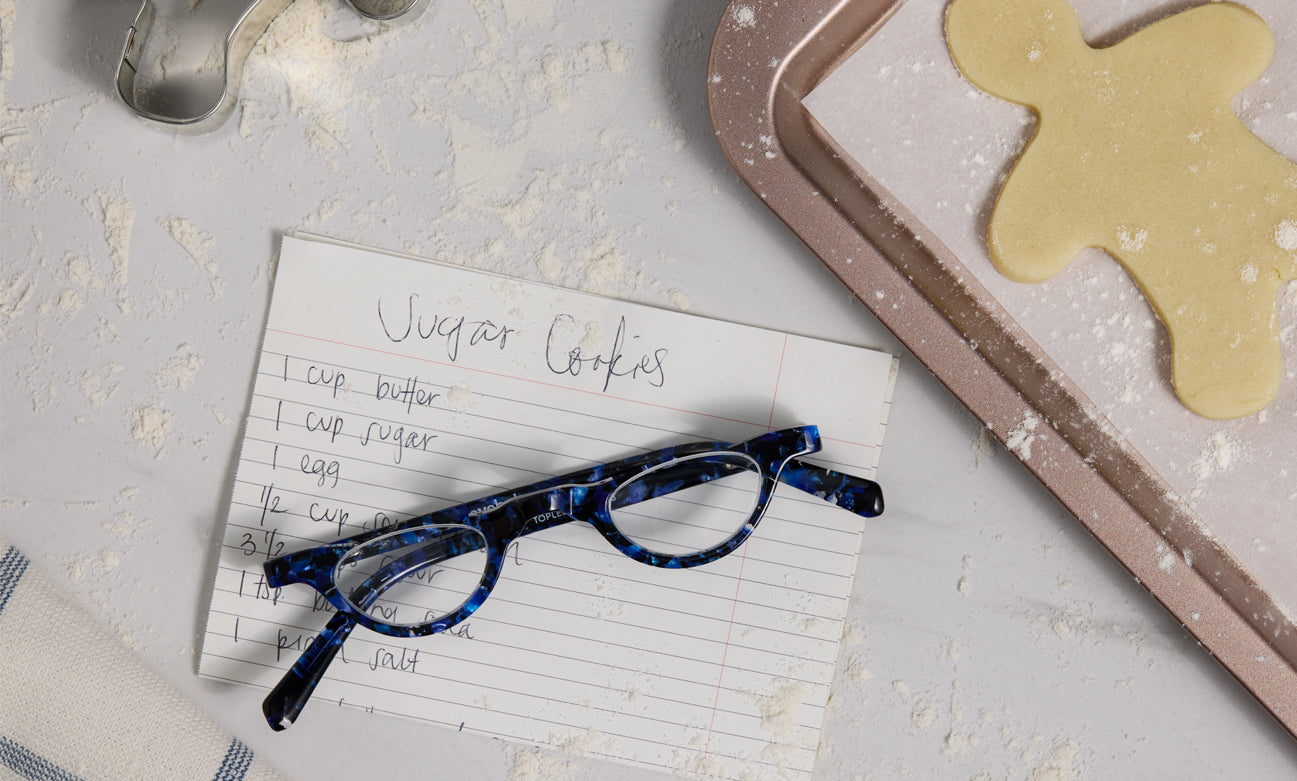 Sugar Cookies
1 cup butter
1 cup sugar
1 egg
1/2 cup
3 1/2
1 tsp
1 salt
TOPLE